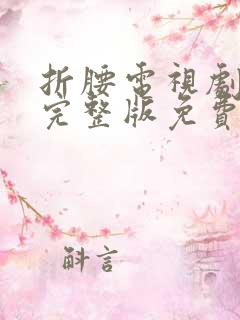 折腰電視劇
完整版免費
斛言